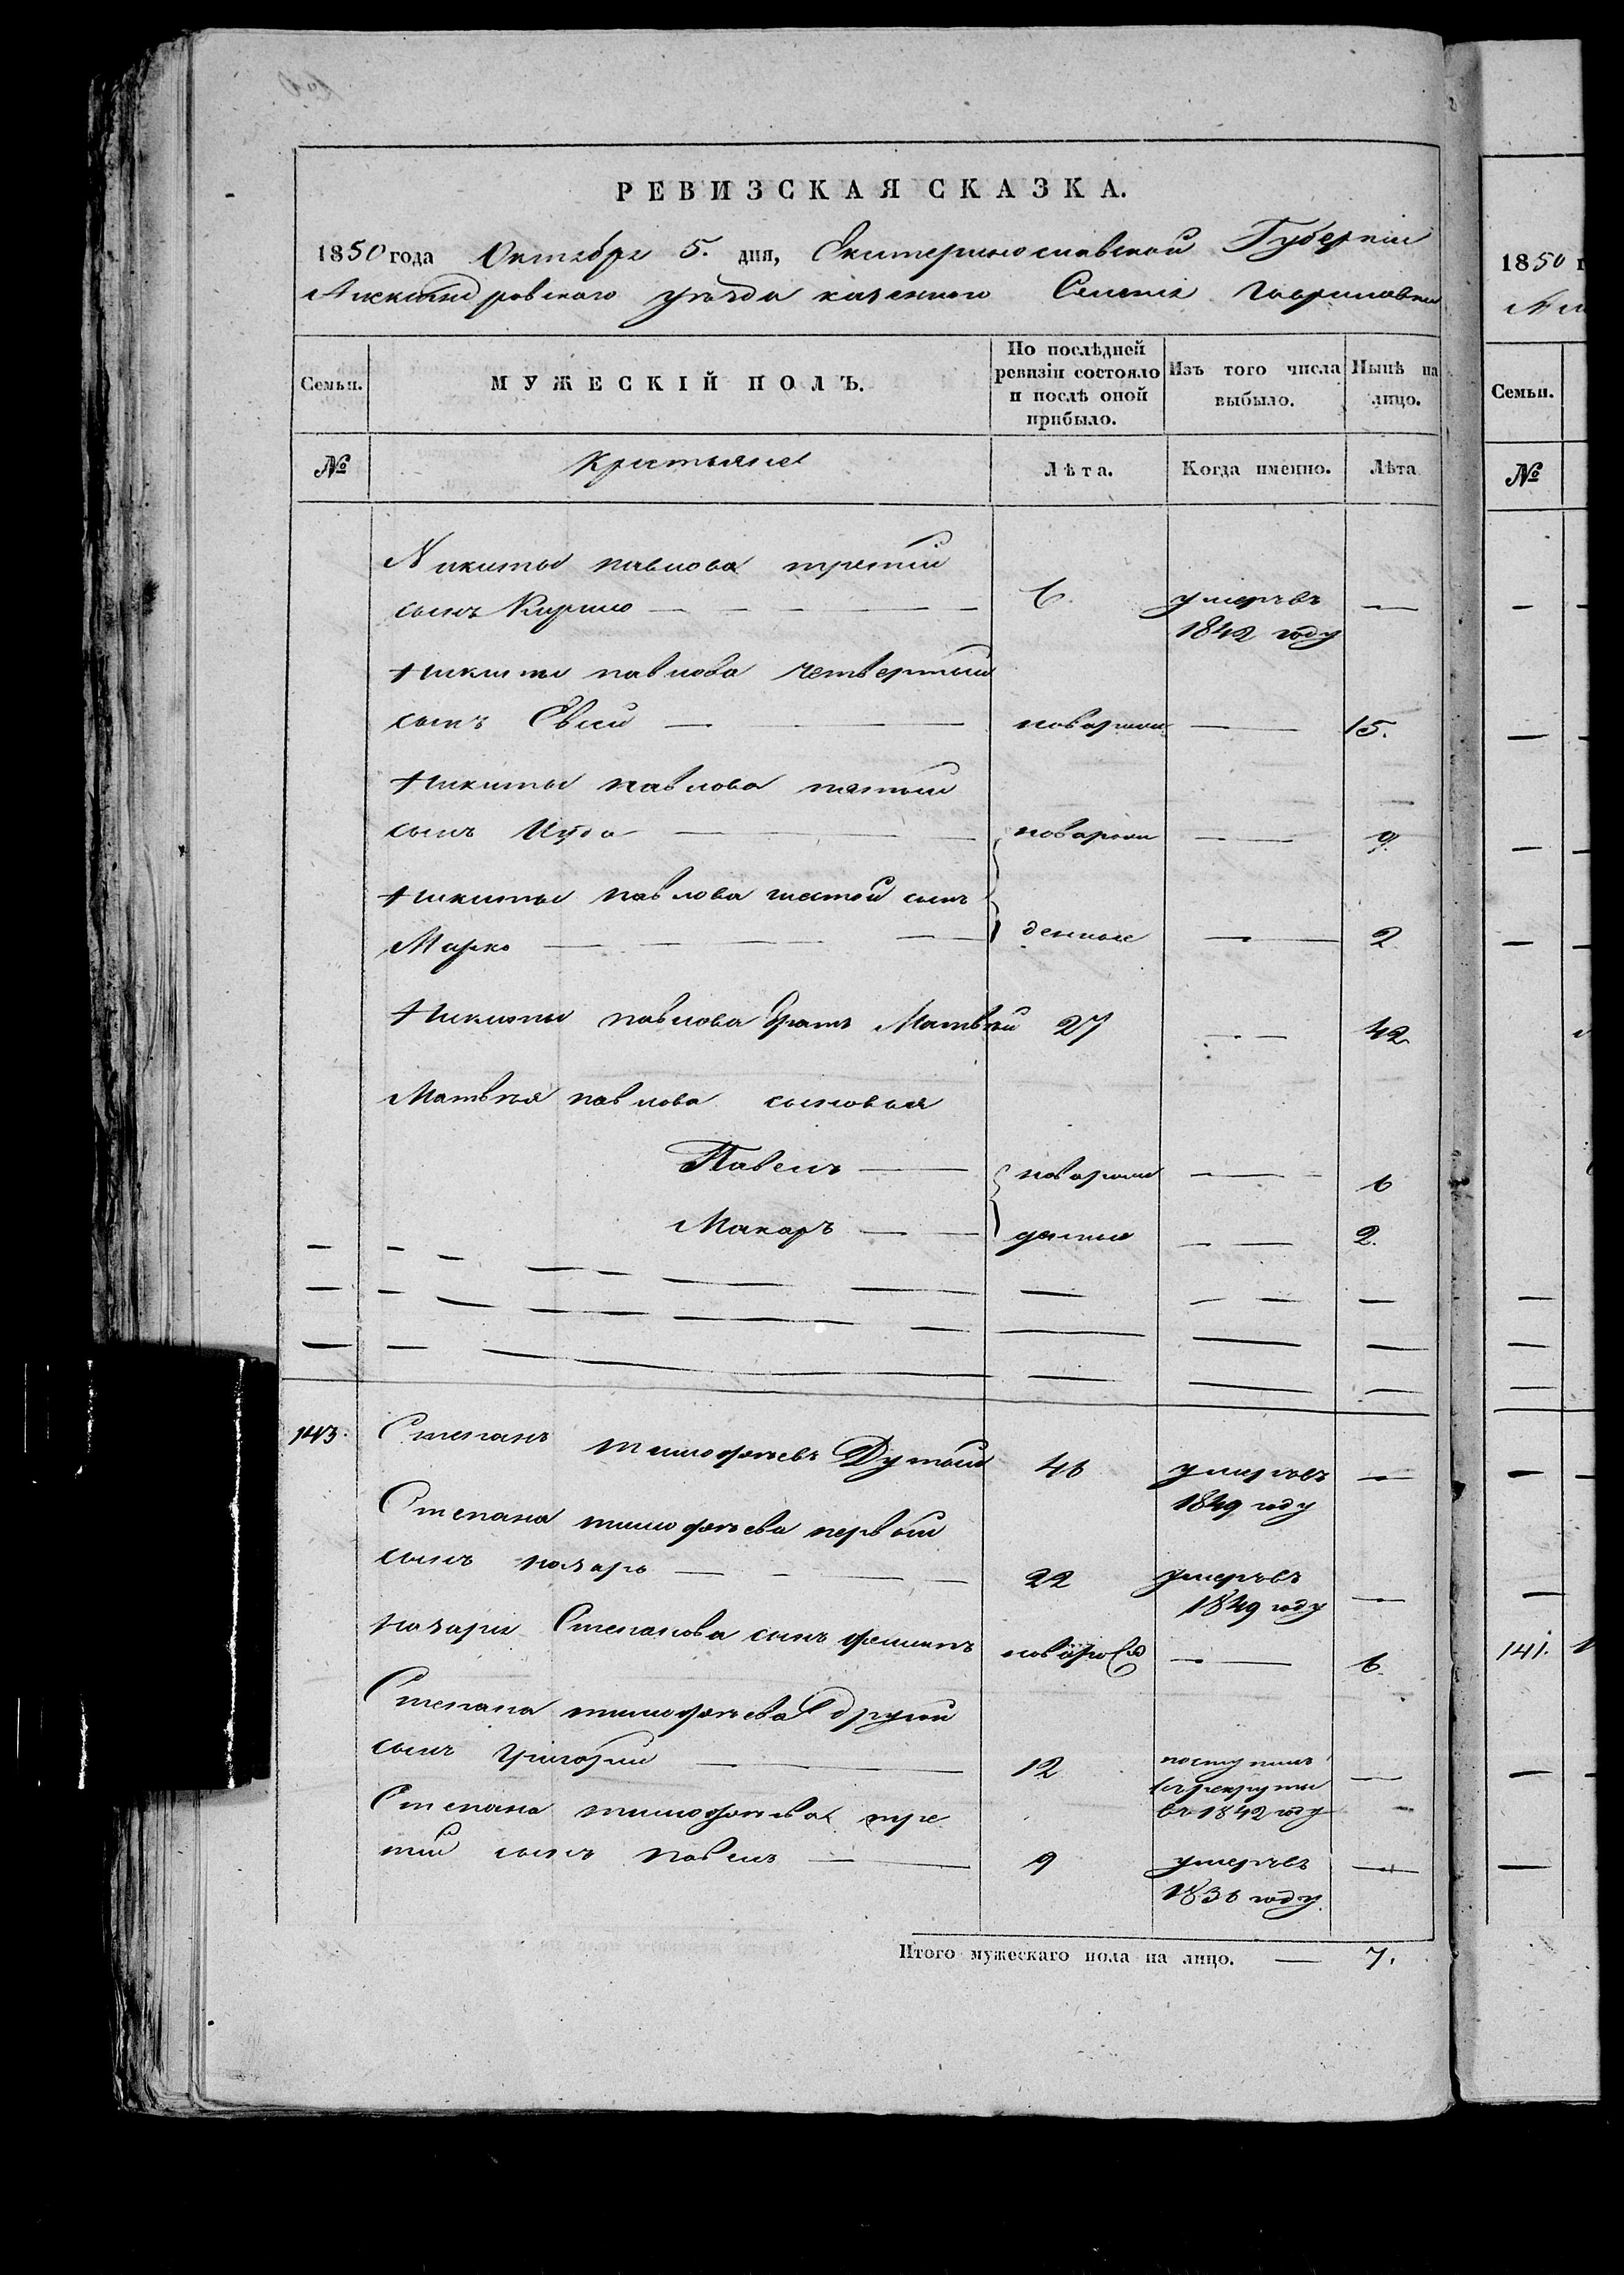 РЕВИЗСКАЯ СКАЗКА.
1850 года Октября 5. дня, Екатеринославской Губерніи
Александровского уѣзда казенного Селенія Гавриловки
Семьи.
МУЖЕСКІЙ ПОЛЪ.
По послѣдней ревизіи состояло и послѣ оной прибыло.
Изъ того числа выбыло.
Нынѣ на лицо.
№ Крестьяне Лѣта. Когда именно. Лѣта
Никиты павлова третій
сынъ Кирило — 6. умеръ въ —
1842 году
Никиты павлова четвертый
сынъ Евсій — новорожд — 15.
Никиты павлова пятый
сынъ Иуда — новорож — 9.
Никиты павлова шестой сынъ
Марко — денные — 2
Никиты павлова братъ Матвѣй 27 — 42
Матвѣя павлова сыновья
Павелъ — новорож — 6
Макаръ — денные — 2.
143. Степанъ тимофѣевъ Дутый 46 умеръ въ —
1849 году
Степана тимофѣева первый
сынъ назаръ — 22 умеръ въ
1849 году —
назара Степанова сынъ филипъ новорож — 6.
Степана тимофѣева другой
сынъ григорій — 12 поступилъ —
въ рекруты
въ 1842 году
Степана тимофѣева тре
тий сынъ павелъ — 9 умеръ въ —
1836 году
Итого мужескаго пола на лицо. — 7.
1850 г
Семьи.
№
141.